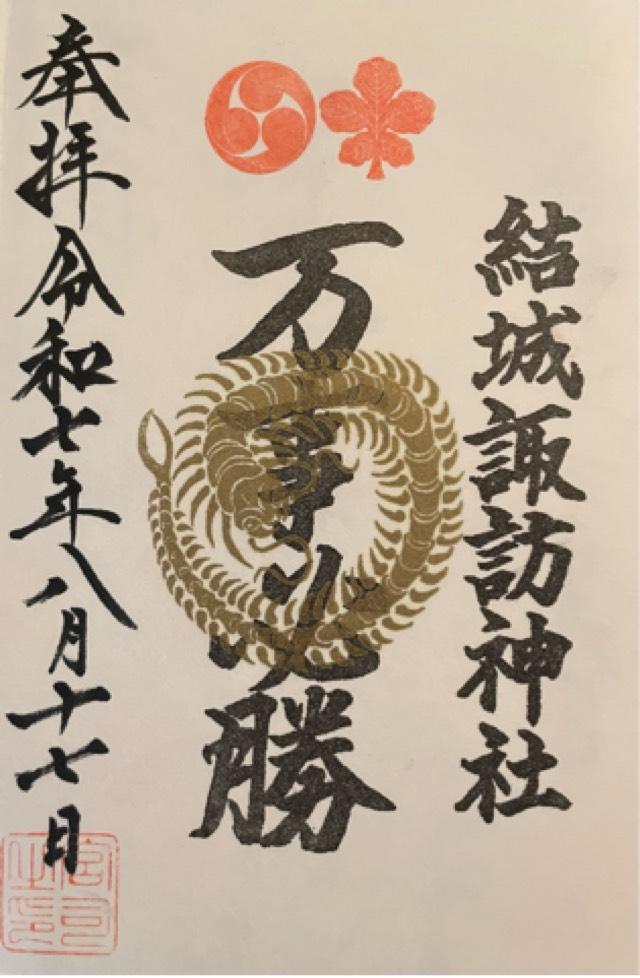 結城諏訪神社
万事必勝
奉拝令和七年八月十七日
宮司之印